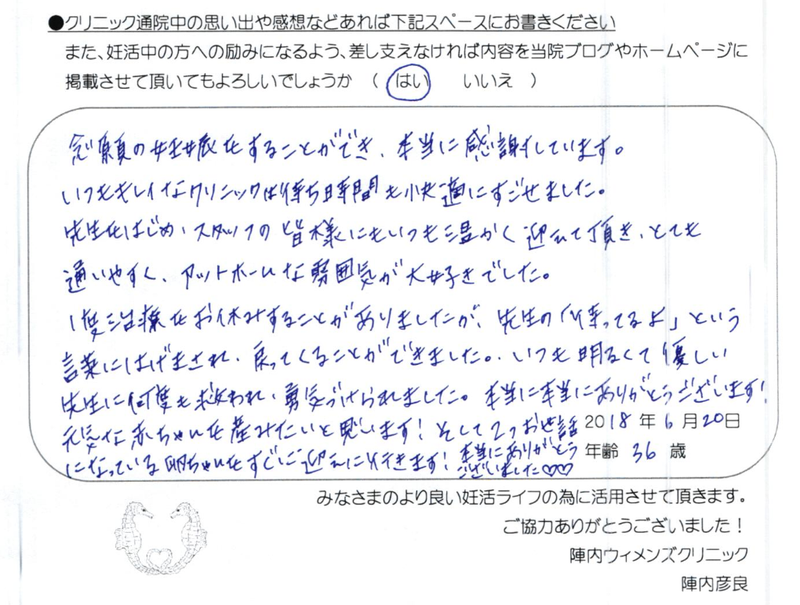 ●クリニック通院中の思い出や感想などあれば下記スペースにお書きください
また、妊活中の方への励みになるよう、差し支えなければ内容を当院ブログやホームページに
掲載させて頂いてもよろしいでしょうか ( はい いいえ )
念願の妊娠をすることができ、本当に感謝しています。
いつもキレイなクリニックは待ち時間も快適にすごせました。
先生をはじめ、スタッフの皆様にもいつも温かく迎えて頂き、とても
通いやすく、アットホームな雰囲気が大好きでした。
1度治療をお休みすることがありましたが、先生の「待ってるよ」という
言葉にはげまされ、戻ってくることができました。いつも明るくて優しい
先生に何度も救われ、勇気づけられました。本当に本当にありがとうございます!
元気な赤ちゃんを産みたいと思います!そして2つお世話
になっている卵ちゃんをすぐご迎えに行きます!本当にありがとう
ございました♡♡
2018年6月20日
年齢 36 歳
みなさまのより良い妊活ライフの為に活用させて頂きます。
ご協力ありがとうございました!
陣内ウィメンズクリニック
陣内彦良